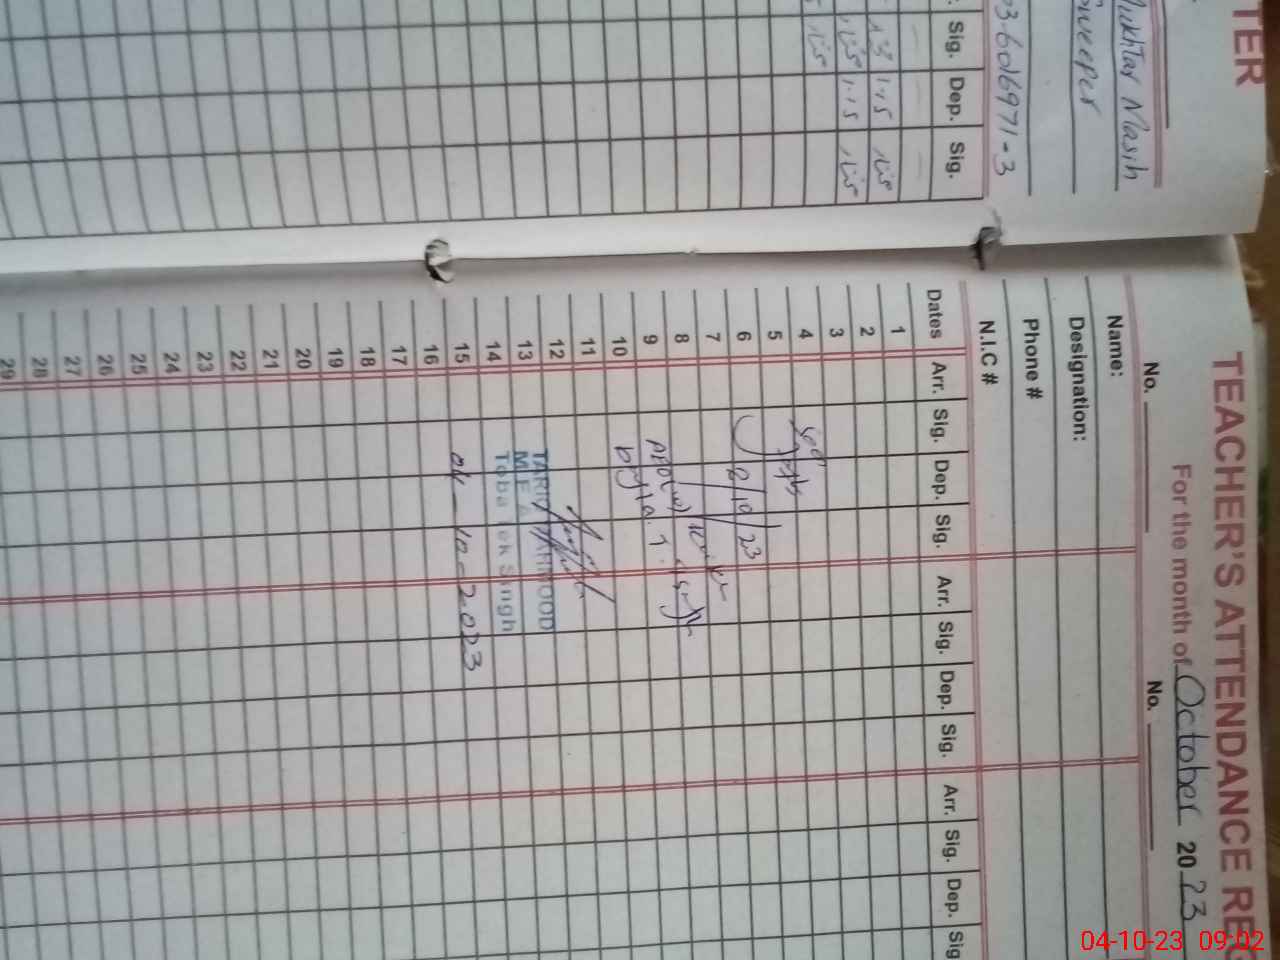 TER
Mukhtar Masih
Sweeper
03-6016971-3
Sig. Dep. Sig.
1.15
1.15
TEACHER'S ATTENDANCE REG
For the month of October 2023
No. No.
Name:
Designation:
Phone #
N.I.C #
Dates Arr. Sig. Dep. Sig. Arr. Sig. Dep. Sig. Arr. Sig. Dep. Sig
1
2
3
4
5
6
7
8
9
10
11
12
13
14
15
16
17
18
19
20
21
22
23
24
25
26
27
28
29
TARIQ MAHMOOD
M.E.A
Toba Tek Singh
04-10-2023
04-10-23 09:02